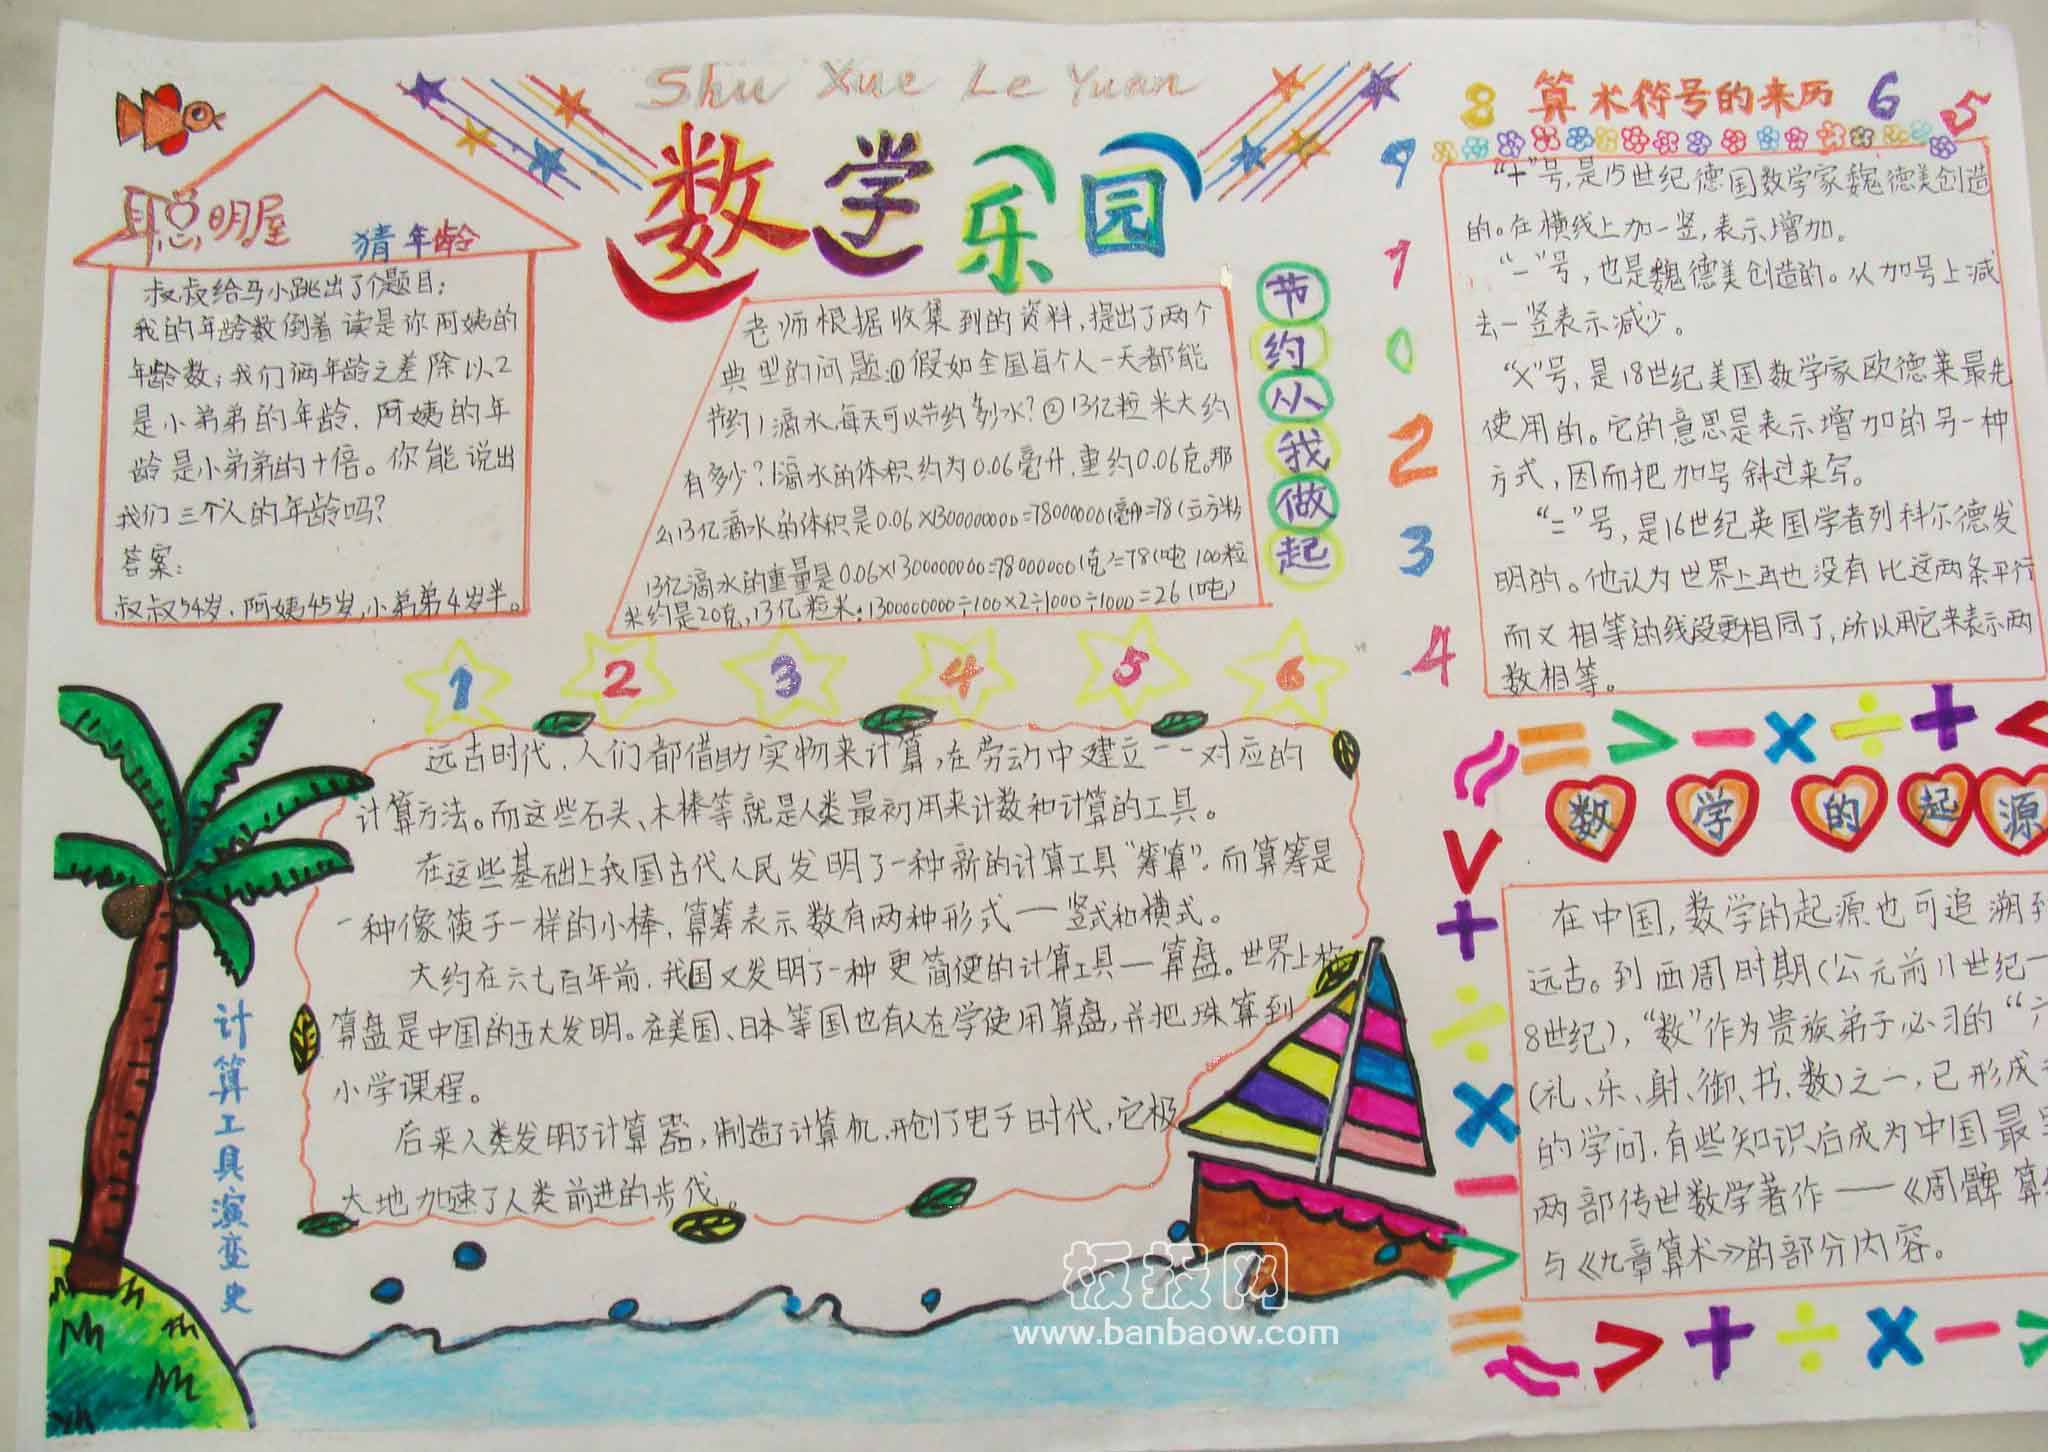 Shu Xue Le Yuan
数学乐园
聪明屋
猜年龄
叔叔给马小跳出了个题目:
我的年龄数倒着读是你阿姨的
年龄数;我们俩年龄之差除以2
是小弟弟的年龄,阿姨的年
龄是小弟弟的十倍。你能说出
我们三个人的年龄吗?
答案:
叔叔54岁.阿姨45岁,小弟弟4岁半。
老师根据收集到的资料,提出了两个
典型的问题:①假如全国每个人一天都能
节约1滴水,每天可以节约多少水?②13亿粒米大约
有多少?1滴水的体积约为0.06毫升,重约0.06克。那
么13亿滴水的体积是0.06×1300000000=78000000(毫升)=78(立方米)
13亿滴水的重量是0.06×1300000000=78000000(克)=78(吨 100粒
米约是20克,13亿粒米:1300000000÷100×2÷1000÷1000=26(吨)
节约从我做起
8 算术符号的来历 6 5
9 1 0 2 3 4
“+”号,是15世纪德国数学家魏德美创造
的。在横线上加一竖,表示增加。
“-”号,也是魏德美创造的。从加号上减
去一竖表示减少。
“X”号,是18世纪美国数学家欧德莱最先
使用的。它的意思是表示增加的另一种
方式,因而把加号斜过来写。
“=”号,是16世纪英国学者列科尔德发
明的。他认为世界上再也没有比这两条平行
而又相等的线段更相同了,所以用它来表示两
数相等。
1 2 3 4 5 6
远古时代,人们都借助实物来计算,在劳动中建立一一对应的
计算方法。而这些石头、木棒等就是人类最初用来计数和计算的工具。
在这些基础上我国古代人民发明了一种新的计算工具“筹算”.而算筹是
一种像筷子一样的小棒,算筹表示数有两种形式一竖式和横式。
大约在六七百年前,我国又发明了一种更简便的计算工具—算盘。世界上把
算盘是中国的五大发明。在美国、日本等国也有人在学使用算盘,并把珠算到
小学课程。
后来人类发明了计算器,制造了计算机,开创了电子时代,它极
大地加速了人类前进的步伐。
计算工具演变史
≈ = > - × ÷ + <
数学的起源
∨ + ÷ × - >
在中国,数学的起源也可追溯到
远古。到西周时期(公元前11世纪一
8世纪),“数”作为贵族弟子必习的“六
(礼、乐、射、御、书、数)之一,已形成
的学问.有些知识后成为中国最
两部传世数学著作——《周髀算
与《九章算术》的部分内容。
= ≈ > + ÷ × - >
板报网
www.banbaow.com